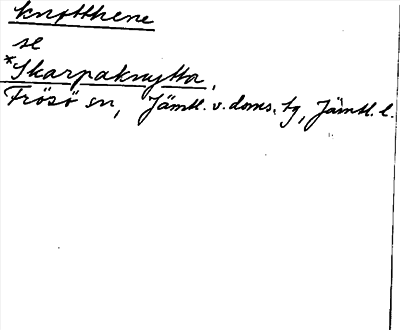 knptthene
se
*Skarpaknytta,
Frösö sn, Jämtl. v. doms. tg, Jämtl. l.